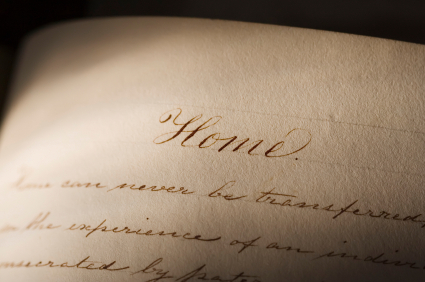 Home.
Home can never be transferred
in the experience of an indivi
onsecrated by pate